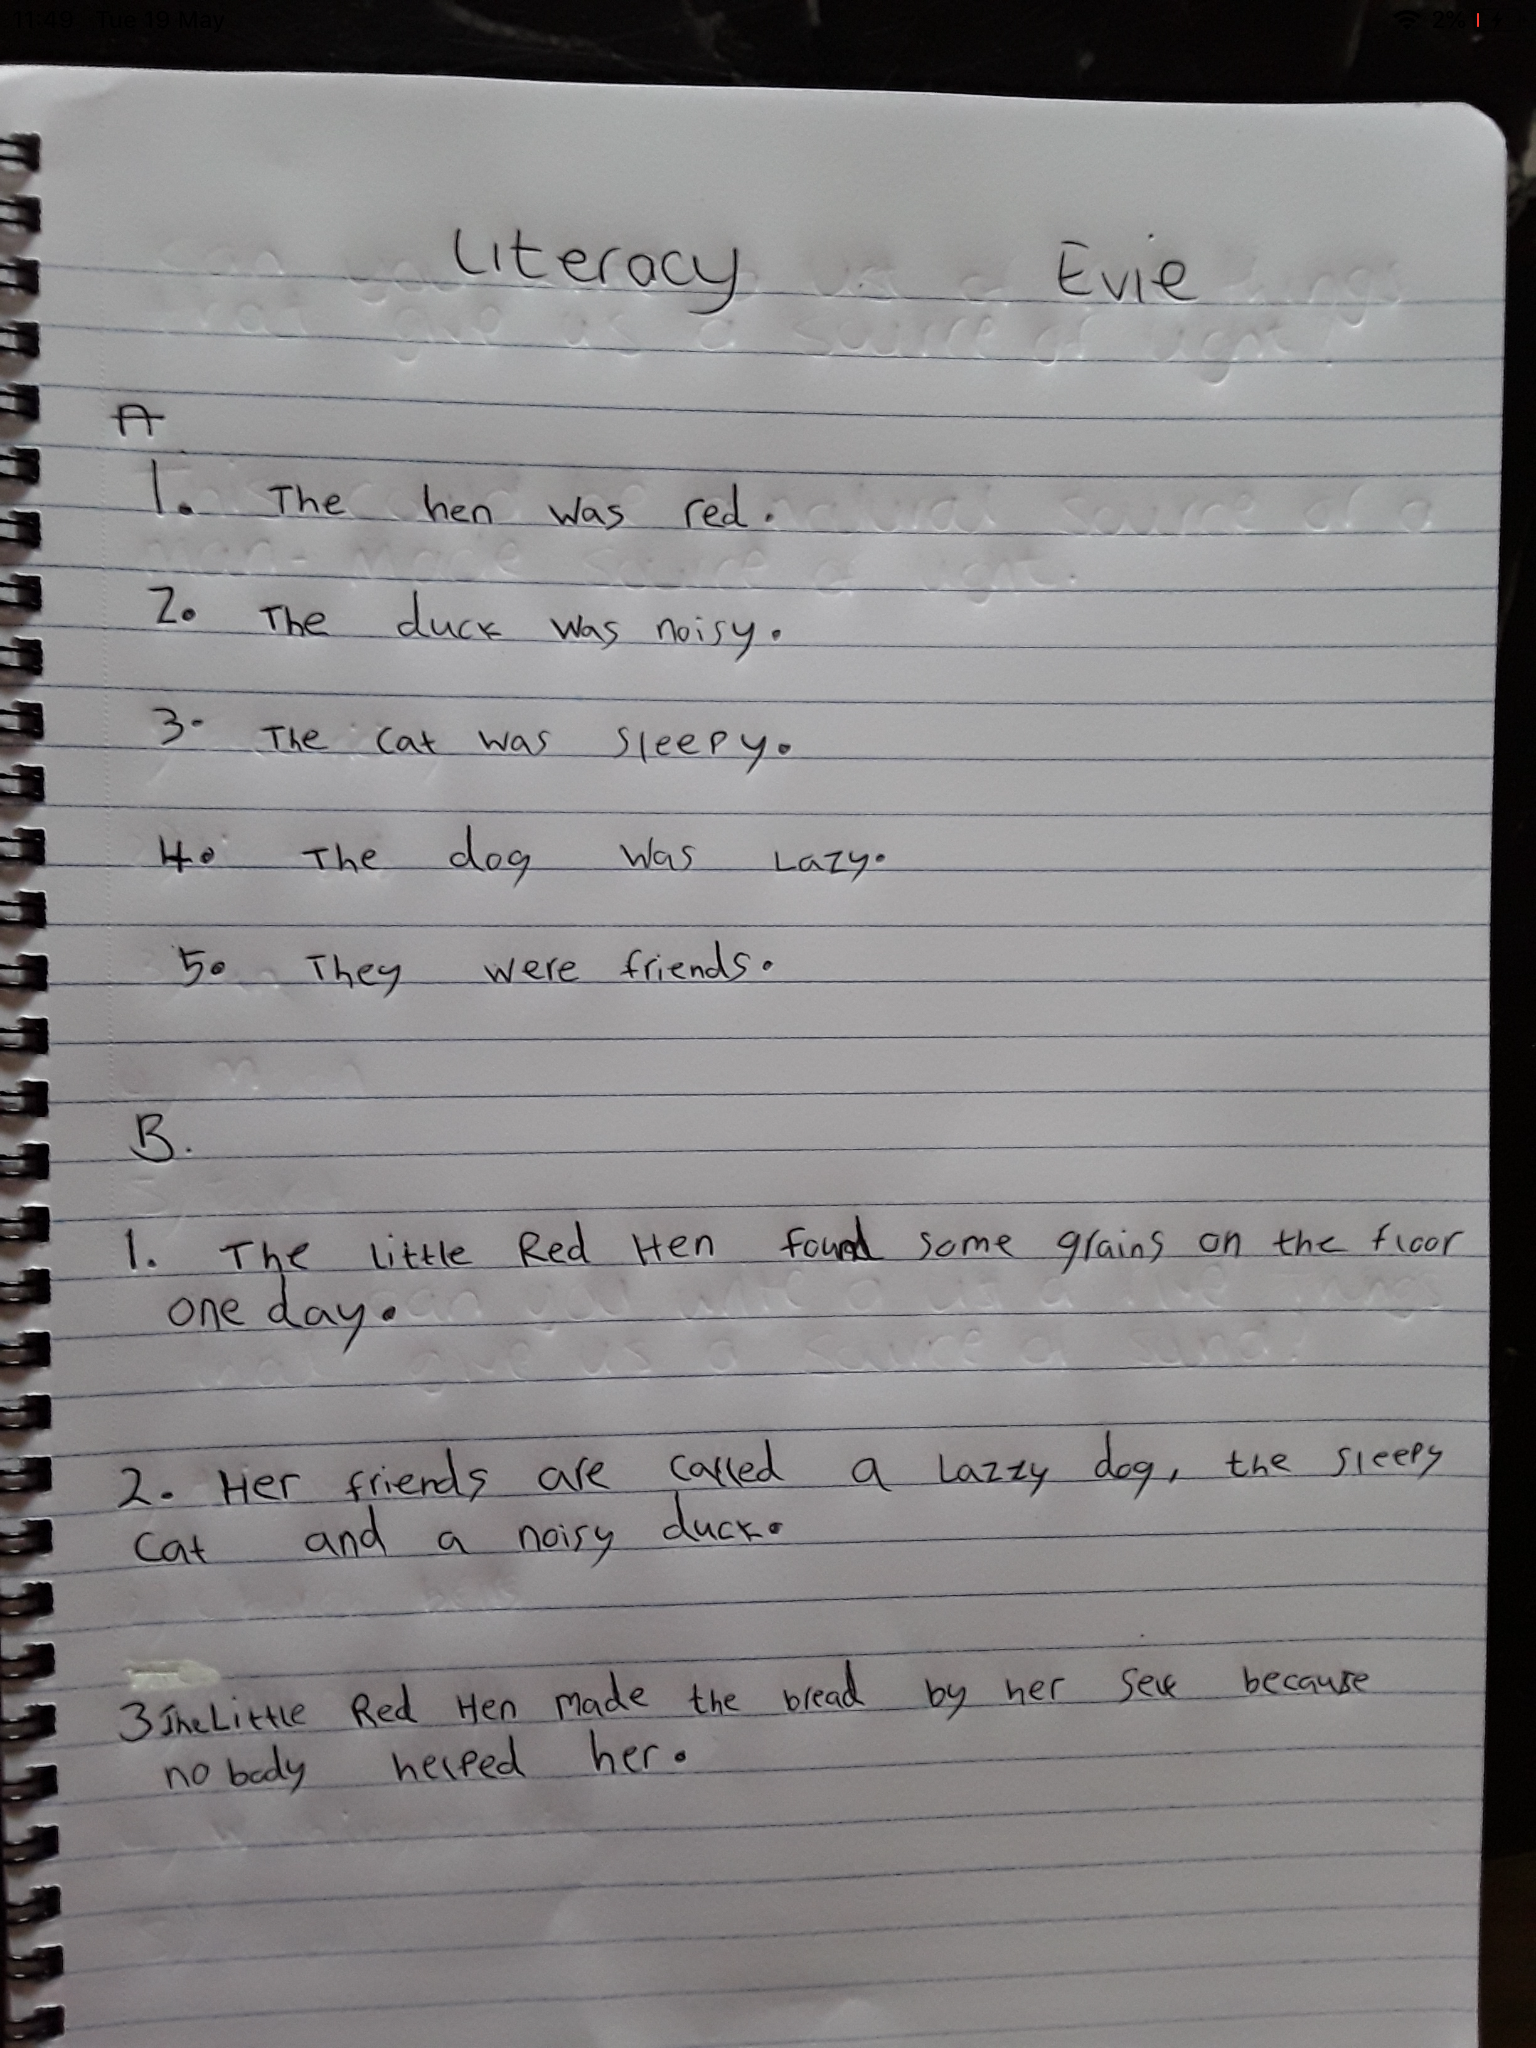 11:49 Tue 19 May 2%
Literacy Evie
A
1. The hen was red.
2. The duck was noisy.
3. The cat was sleepy.
4. The dog was Lazy.
5. They were friends.
B.
1. The little Red Hen found some grains on the floor
one day.
2. Her friends are called a Lazzy dog, the sleepy
cat and a noisy duck.
3 The Little Red Hen made the bread by her self because
no body helped her.